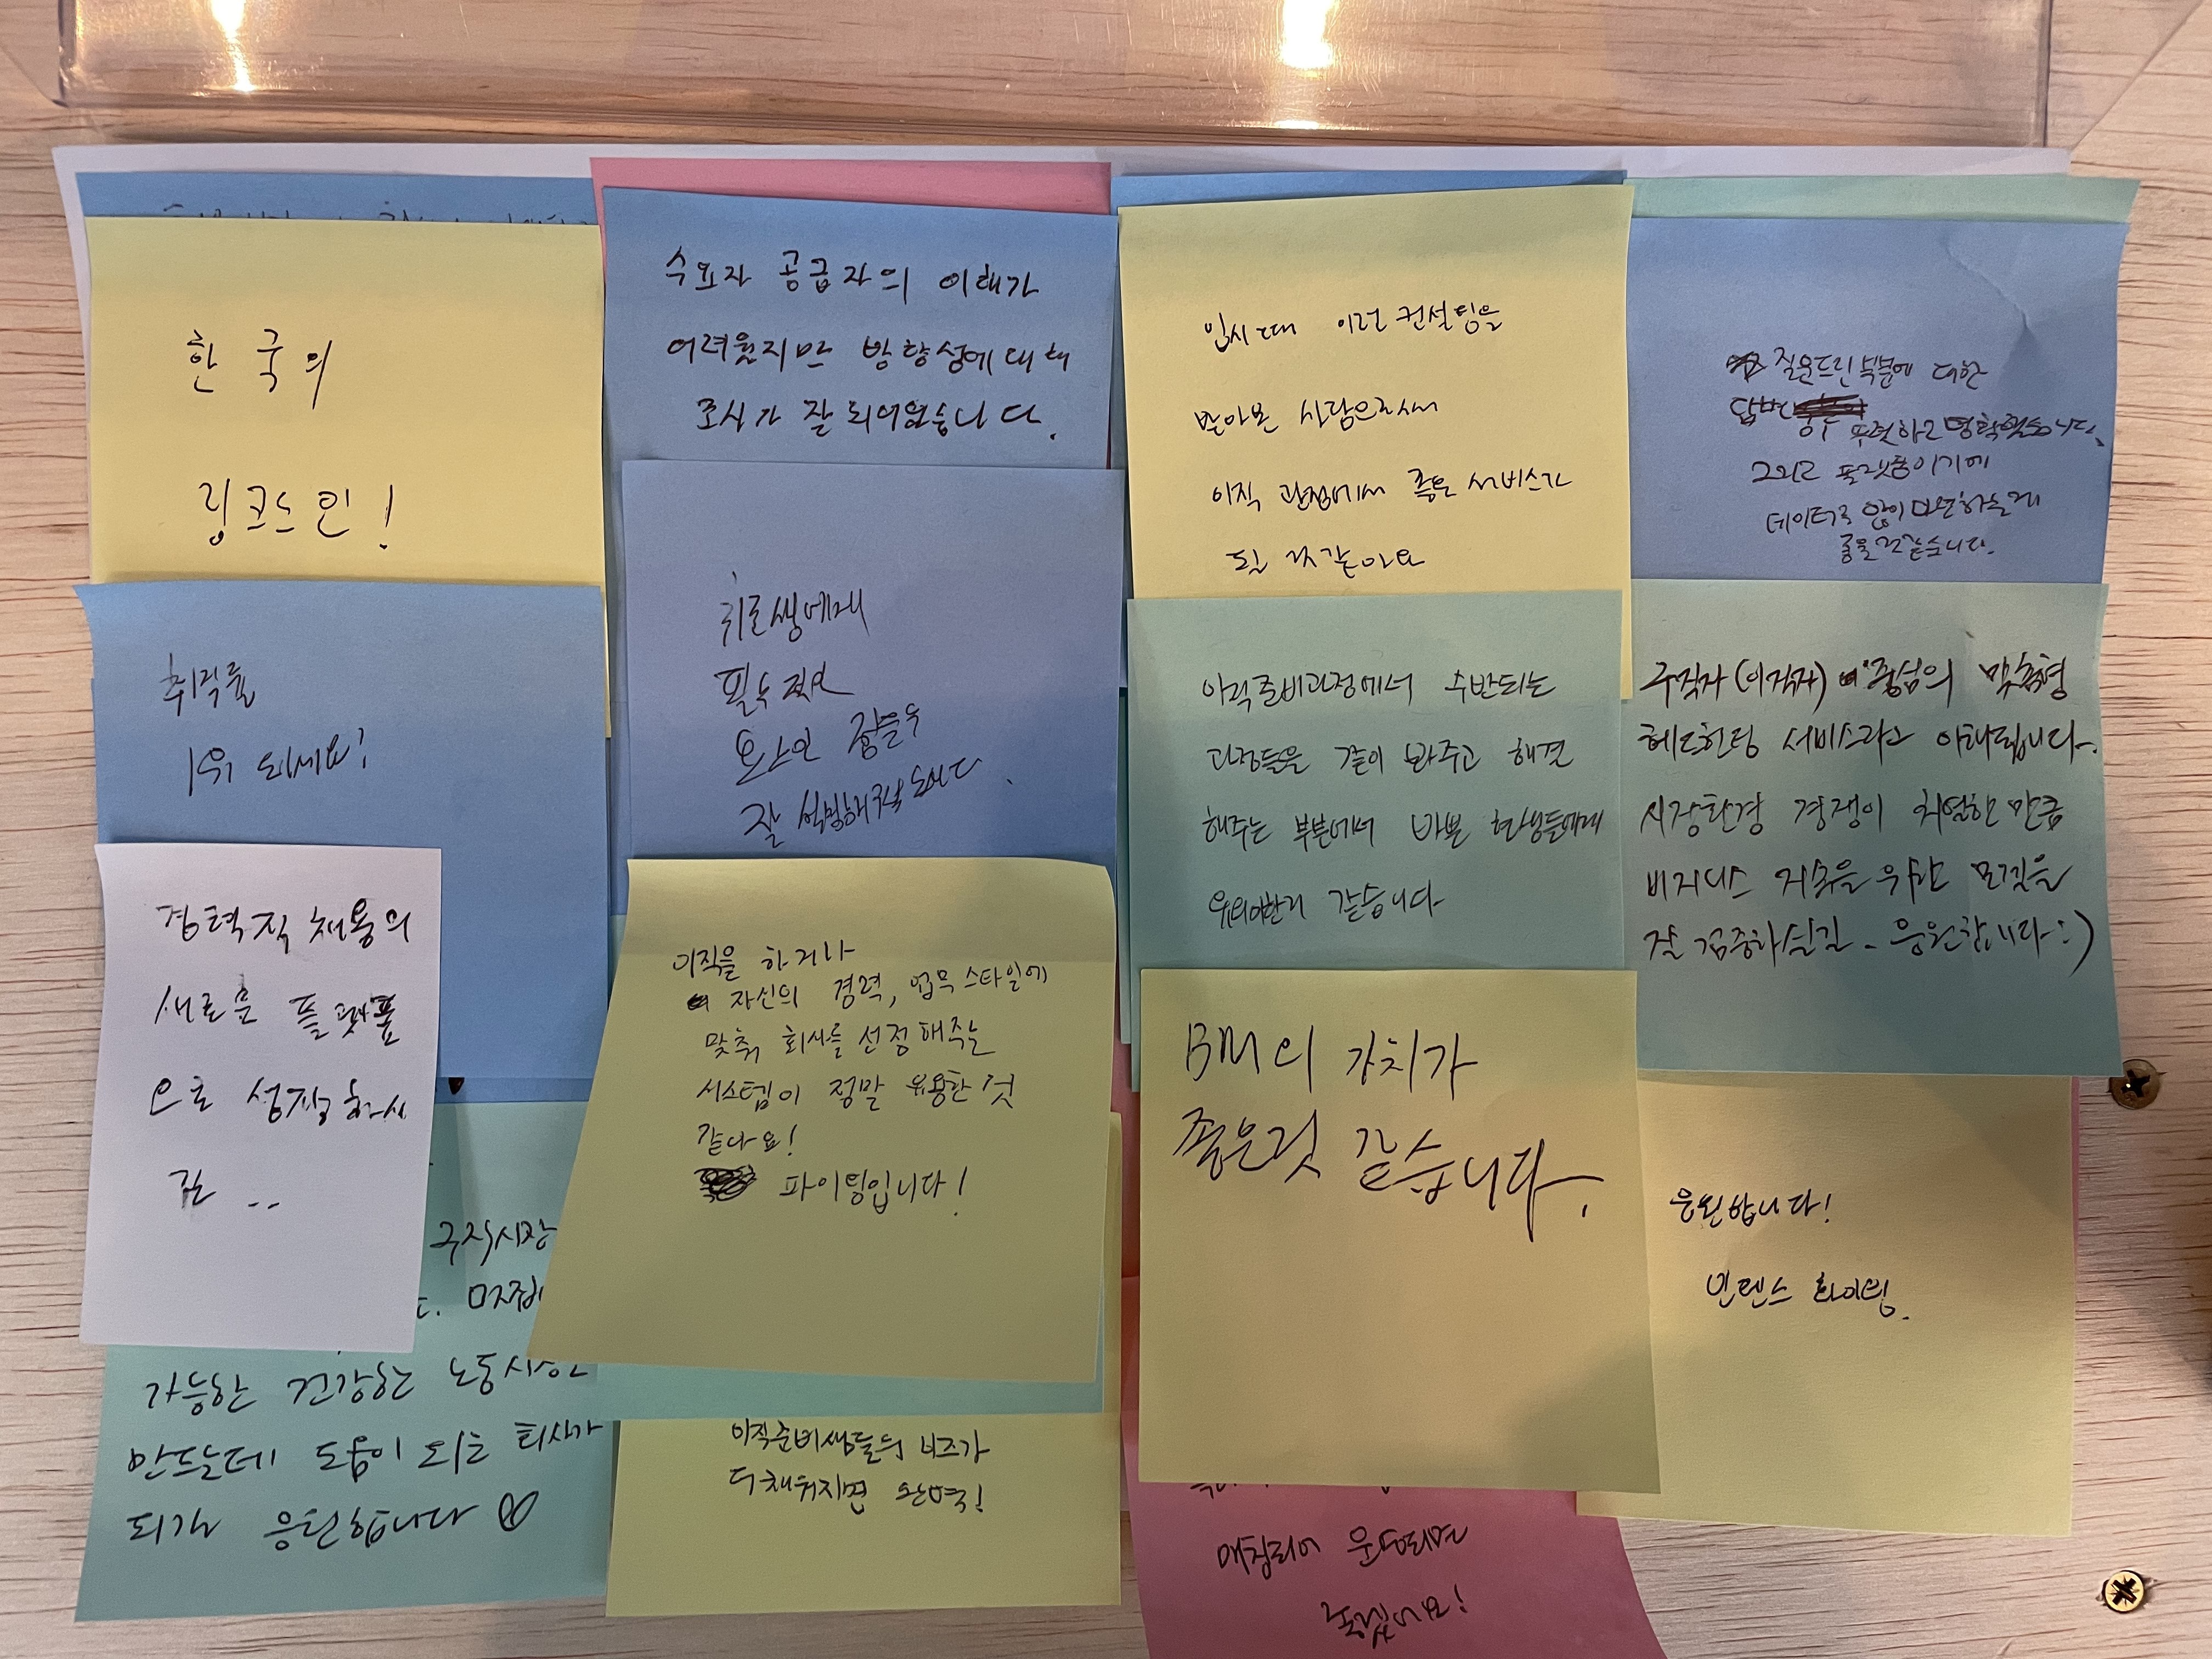 한국의
링크드인!
수요자 공급자의 이해가
어려웠지만 방향성에 대해
조사가 잘 되어있습니다.
입시 때 이런 컨설팅을
받아본 사람으로서
이직 관점에서 좋은 서비스가
될 것 같아요
질문드린 부분에 대한
답변 뚜렷하고 명확했습니다.
그리고 플랫폼이기에
데이터를 많이 마련하는게
좋을 것 같습니다.
취직률
1위 되세요!
취준생에게
필수적인
요소인
잘
이직준비과정에서 수반되는
과정들을 같이 봐주고 해결
해주는 부분에서 바쁜 현생들에게
유의미한거 같습니다
구직자(이직자) 중심의 맞춤형
헤드헌팅 서비스라고 이해됩니다.
시장환경 경쟁이 치열한 만큼
비지니스 지속을 위한
잘 검증하실길.. 응원합니다:)
경력직 채용의
새로운 플랫폼
으로 성장하시
길..
이직을 하거나
자신의 경력, 업무 스타일에
맞춰 회사를 선정해주는
시스템이 정말 유용한 것
같다요!
파이팅입니다!
BM의 가치가
좋은것 같습니다.
응원합니다!
인텐스 화이팅.
구직시장
가능한 건강한 노동시장
만드는데 도움이 되는 회사가
되길 응원합니다
이직준비생들의 니즈가
더 채워지면 완벽!
매칭되어 운영되면
좋겠어요!